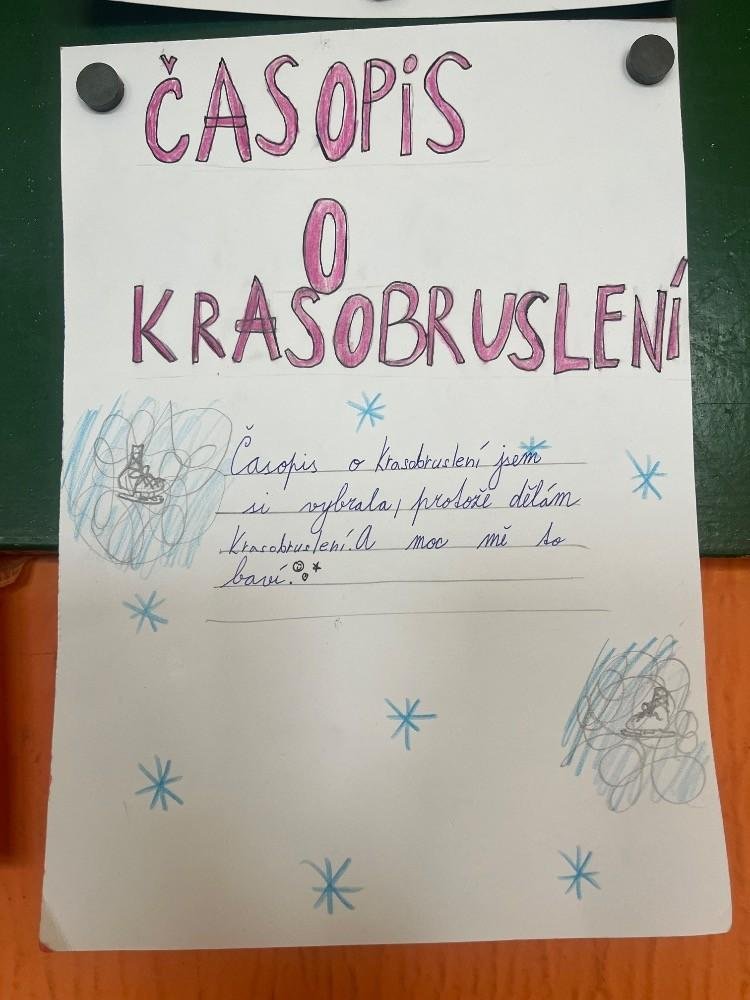 ČASOPIS
O
KRASOBRUSLENÍ
Časopis o krasobruslení jsem
si vybrala, protože dělám
krasobruslení. A moc mě to
baví.